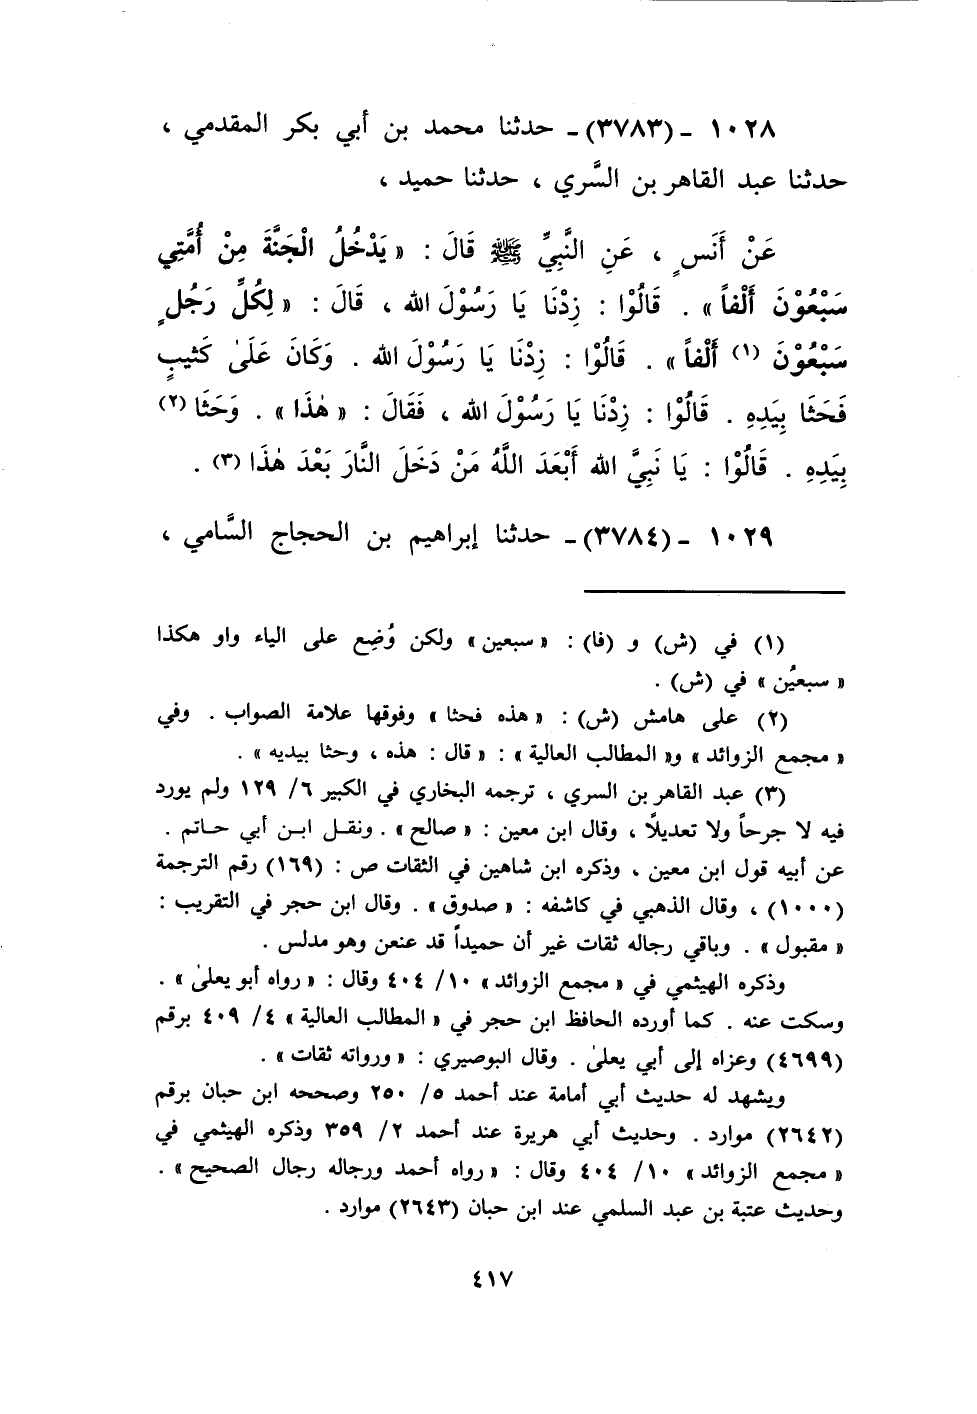 ١٠٢٨ ـ (٣٧٨٣)ـ حدثنا محمد بن أبي بكر المقدمي ،
حدثنا عبد القاهر بن السَّري ، حدثنا حميد ،
عَنْ أَنَسٍ ، عَنِ النَّبِيِّ ﷺ قَالَ : « يَدْخُلُ الْجَنَّةَ مِنْ أُمَّتِي
سَبْعُوْنَ أَلْفاً» . قَالُوْا : زِدْنَا يَا رَسُوْلَ الله ، قَالَ : « لِكُلِّ رَجُلٍ
سَبْعُوْنَ (١) أَلْفاً» . قَالُوْا : زِدْنَا يَا رَسُوْلَ الله . وَكَانَ عَلَىٰ كَثيبٍ
فَحَثَا بِيَدِهِ . قَالُوْا : زِدْنَا يَا رَسُوْلَ الله ، فَقَالَ : « هٰذَا» . وَحَثَا (٢)
بِيَدِهِ . قَالُوْا : يَا نَبِيَّ الله أَبْعَدَ اللَّهُ مَنْ دَخَلَ النَّارَ بَعْدَ هٰذَا (٣) .
١٠٢٩ ـ (٣٧٨٤)ـ حدثنا إبراهيم بن الحجاج السَّامي ،
(١) في (ش) و (فا) : « سبعين» ولكن وُضِع على الياء واو هكذا
« سبعيُن» في (ش) .
(٢) على هامش (ش) : « هذه فحثا» وفوقها علامة الصواب . وفي
« مجمع الزوائد» و« المطالب العالية» : « قال : هذه ، وحثا بيديه» .
(٣) عبد القاهر بن السري ، ترجمه البخاري في الكبير ٦/ ١٢٩ ولم يورد
فيه لا جرحاً ولا تعديلًا ، وقال ابن معين : « صالح» . ونقل ابن أبي حاتم .
عن أبيه قول ابن معين ، وذكره ابن شاهين في الثقات ص : (١٦٩) رقم الترجمة
(١٠٠٠) ، وقال الذهبي في كاشفه : « صدوق» . وقال ابن حجر في التقريب :
« مقبول» . وباقي رجاله ثقات غير أن حميداً قد عنعن وهو مدلس .
وذكره الهيثمي في « مجمع الزوائد» ١٠/ ٤٠٤ وقال : « رواه أبو يعلىٰ» .
وسكت عنه . كما أورده الحافظ ابن حجر في « المطالب العالية» ٤/ ٤٠٩ برقم
(٤٦٩٩) وعزاه إلى أبي يعلىٰ . وقال البوصيري : « ورواته ثقات» .
ويشهد له حديث أبي أمامة عند أحمد ٥/ ٢٥٠ وصححه ابن حبان برقم
(٢٦٤٢) موارد . وحديث أبي هريرة عند أحمد ٢/ ٣٥٩ وذكره الهيثمي في
« مجمع الزوائد» ١٠/ ٤٠٤ وقال : « رواه أحمد ورجاله رجال الصحيح» .
وحديث عتبة بن عبد السلمي عند ابن حبان (٢٦٤٣) موارد .
٤١٧